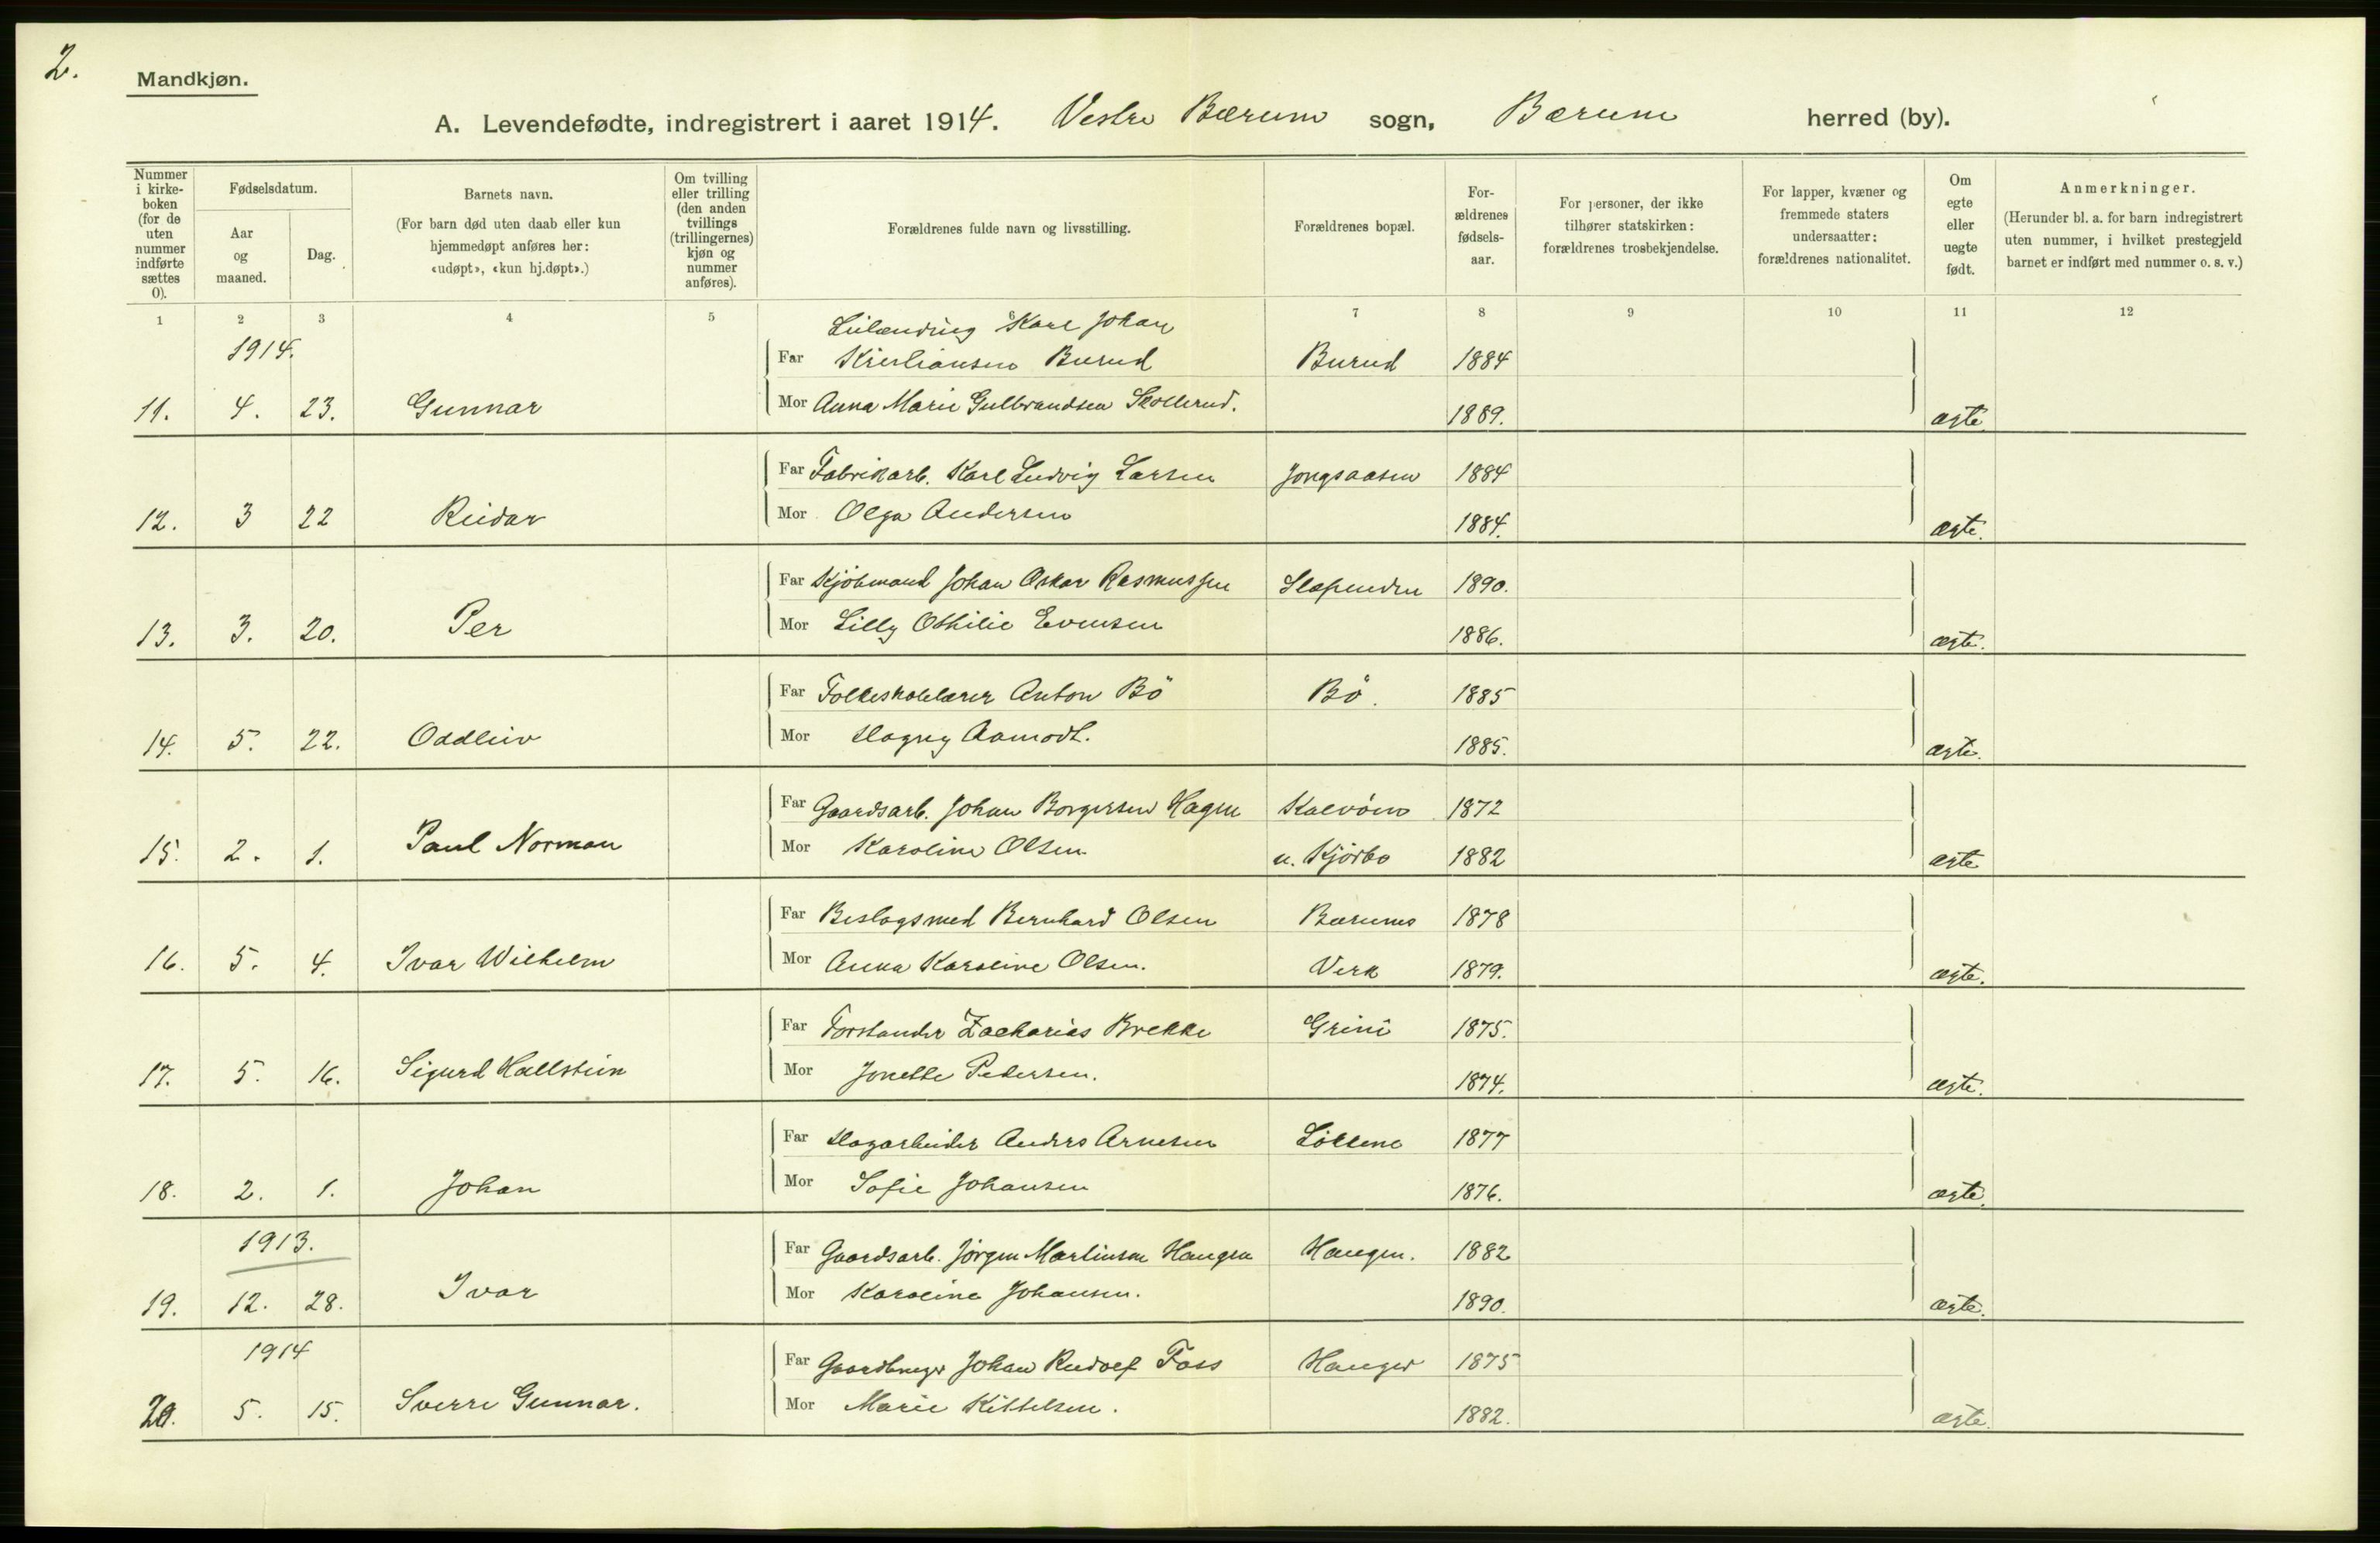 2.
Mandkjøn.
A. Levendefødte, indregistrert i aaret 1914. Vestre Bærum sogn, Bærum herred (by).
Nummer i kirke-boken (for de uten nummer indførte sættes 0).
Fødselsdatum.
Aar og maaned.
Dag.
Barnets navn.
(For barn død uten daab eller kun hjemmedøpt anføres her: «udøpt», «kun hj.døpt».)
Om tvilling eller trilling (den anden tvillings (trillingernes) kjøn og nummer anføres).
Forældrenes fulde navn og livsstilling.
Forældrenes bopæl.
For-ældrenes fødsels-aar.
For personer, der ikke tilhører statskirken: forældrenes trosbekjendelse.
For lapper, kvæner og fremmede staters undersaatter: forældrenes nationalitet.
Om egte eller uegte født.
Anmerkninger.
(Herunder bl. a. for barn indregistrert uten nummer, i hvilket prestegjeld barnet er indført med nummer o. s. v.)
1 2 3 4 5 7 8 9 10 11 12
1914.
Leilending Karl Johan
Far Kristiansen Burud Burud 1884
11. 4. 23. Gunnar Mor Anna Marie Gulbrandsen Skollerud. 1889. ægte
Far Fabrikarb. Karl Ludvig Larsen Jongsaasen 1884
12. 3 22 Reidar Mor Olga Andersen 1884. ægte.
Far Kjøbmand Johan Oskar Rasmussen Slependen 1890.
13. 3. 20. Per Mor Lilly Othilie Evensen 1886. ægte.
Far Folkeskolelærer Anton Bö Bö. 1885
14. 5. 22. Oddleiv Mor Dagny Aamodt. 1885. ægte.
Far Gaardsarb. Johan Borgersen Hagen Kalvöen 1872
15. 2. 1. Paul Norman Mor Karoline Olsen u. Kjörbo 1882 ægte
Far Beslagsmed Bernhard Olsen Bærums 1878
16. 5. 4. Ivar Wilhelm Mor Anna Karoline Olsen. Verk 1879. ægte.
Far Forstander Zacharias Brekke Grini 1875.
17. 5. 16. Sigurd Hallstein Mor Jonette Pedersen. 1874. ægte.
Far Dagarbeider Anders Arnesen Lökkene 1877
18. 2. 1. Johan Mor Sofie Johansen 1876. ægte.
1913.
Far Gaardsarb. Jörgen Martinsen Haugen Haugen. 1882
19. 12. 28. Ivar Mor Karoline Johansen. 1890. ægte.
1914
Far Gaardbruger Johan Rudolf Foss Hauger 1875
20. 5. 15. Sverre Gunnar. Mor Marie Kittelsen. 1882. ægte.